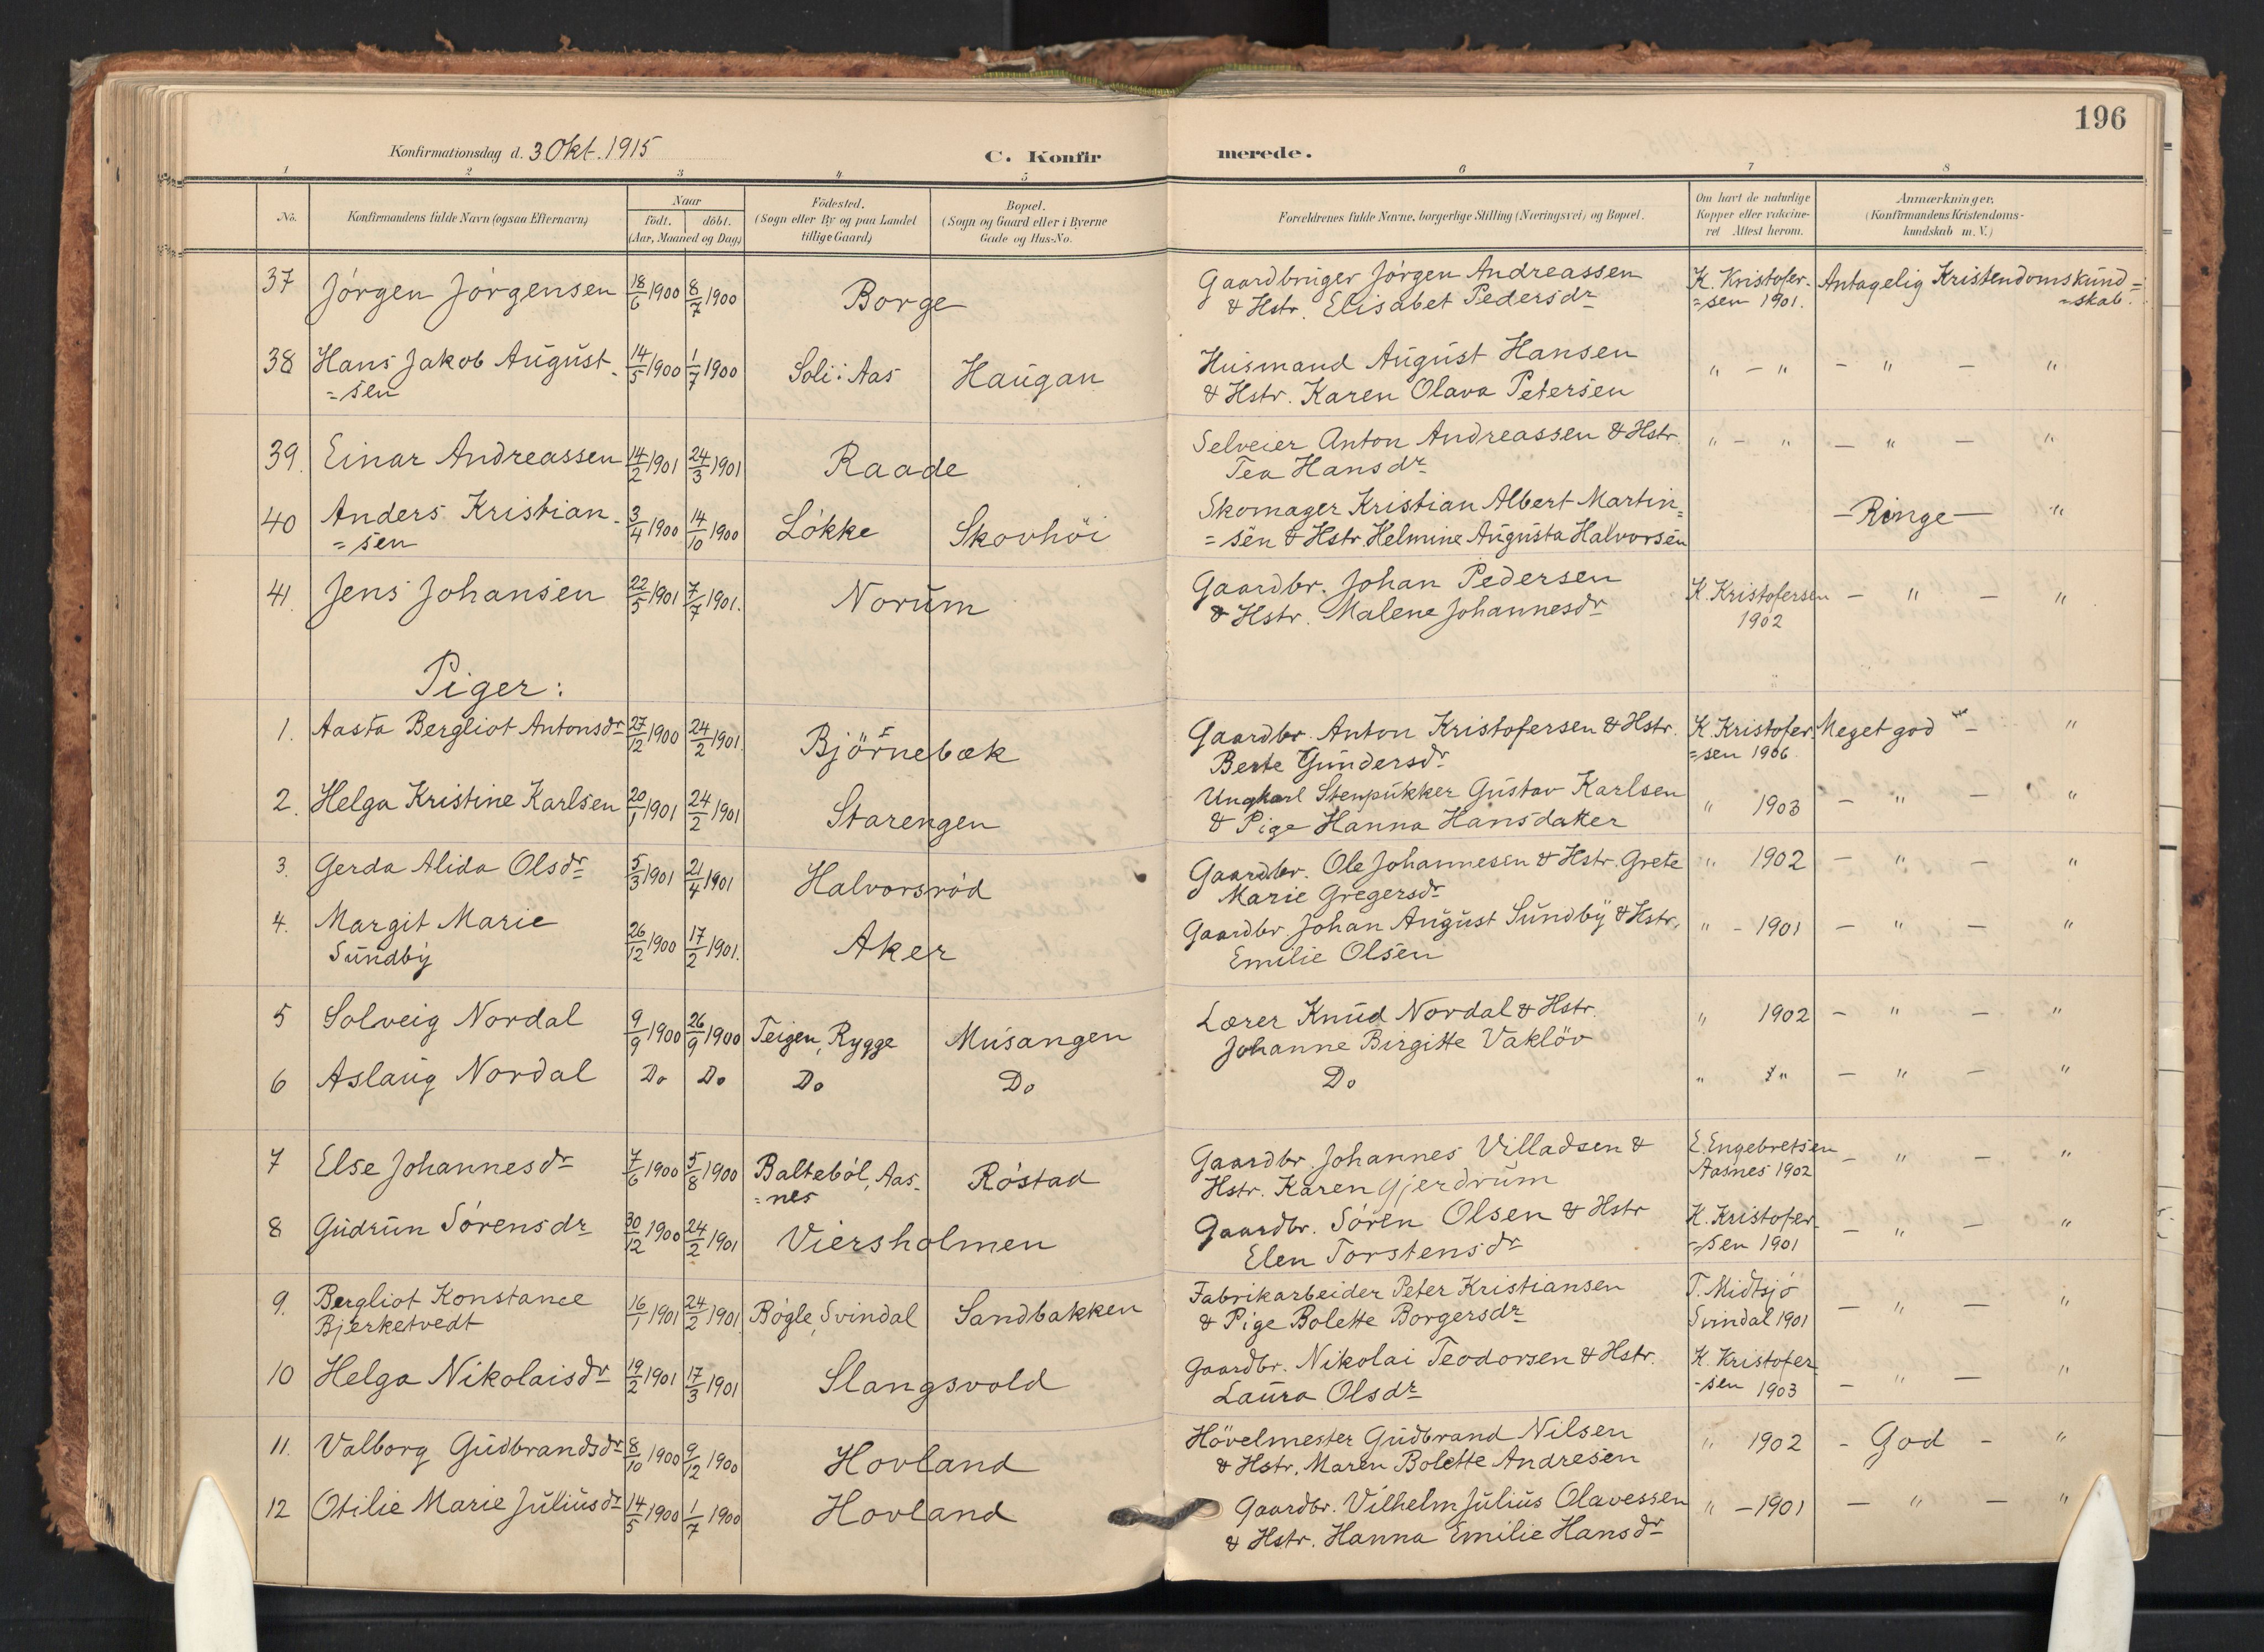 196
Konfirmationsdag d. 3 Okt. 1915 C. Konfirmerede.
1 2 3 4 5 6 7 8
No. Konfirmandens fulde Navn (ogsaa Efternavn) Naar født. døbt. (Aar, Maaned og Dag) Fødested. (Sogn eller By og paa Landet tillige Gaard) Bopæl. (Sogn og Gaard eller i Byerne Gade og Hus-No. Forældrenes fulde Navne, borgerlige Stilling (Næringsvei) og Bopæl. Om havt de naturlige Kopper eller vakcineret Attest herom. Anmærkninger. (Konfirmandens Kristendomskundskab m. V.)
37 Jörgen Jörgensen 18/6 1900 8/7 1900 Borge Gaardbruger Jörgen Andreassen K. Kristofer- Antagelig Kristendomskund=
& Hstr. Elisabet Pedersdr =sen 1901. =skab.
38 Hans Jakob August- 14/5 1900 1/7 1900 Soli: Aas Haugan Husmand August Hansen " - " - " - "
=sen & Hstr. Karen Olava Petersen
39. Einar Andreassen 14/2 1901 24/3 1901 Raade Selveier Anton Andreassen & Hstr. " - " - " - "
Tea Hansdr
40 Anders Kristian- 3/4 1900 14/10 1900 Lökke Skovhöi Skomager Kristian Albert Martin= - Ringe - "
=sen =sen & Hstr. Helmine Augusta Halvorsen
41. Jens Johansen 22/5 1901 7/7 1901. Norum Gaardbr. Johan Pedersen K. Kristofersen - " - "
& Hstr. Malene Johannesdr 1902
Piger:
1. Aasta Bergliot Antonsdr 27/12 1900 24/2 1901. Björnebæk Gaardbr. Anton Kristofersen & Hstr. K. Kristofer- Meget god - "
Berte Gundersdr =sen 1906
2. Helga Kristine Karlsen 20/1 1901 24/2 1901 Starengen Ungkarl Stenpukker Gustav Karlsen " 1903 - " - "
& Pige Hanna Hansdatter
3. Gerda Alida Olsdr 5/3 1901 21/4 1901 Halvorsröd Gaardbr. Ole Johannesen & Hstr. Grete " 1902 - " - "
Marie Gregersdr
4. Margit Marie 26/12 1900 17/2 1901. Aker Gaardbr. Johan August Sundby & Hstr. " - 1901 - " - "
Sundby Emilie Olsen
5 Solveig Nordal 9/9 1900 26/9 1900 Teigen, Rygge Musangen Lærer Knud Nordal & Hstr. " 1902 - " - "
Johanne Birgitte Vaklöv
6 Aslaug Nordal Do Do Do Do Do " " - " - "
7 Else Johannesdr 7/6 1900 5/8 1900 Balteböl, Aas- Röstad Gaardbr. Johannes Villadsen & E. Engebretsen - " - "
=nes Hstr. Karen Gjerdrum Aasnes 1902
8 Gudrun Sörensdr 30/12 1900 24/2 1901 Viersholmen Gaardbr. Sören Olsen & Hstr K. Kristofer- - " - "
Elen Torstensdr =sen 1901
9. Bergliot Konstance 16/1 1901 24/2 1901. Bögle, Svindal Sandbakken Fabrikarbeider Peter Kristiansen T. Midtsjö - " - "
Bjerketvedt & Pige Bolette Borgersdr Svindal 1901
10 Helga Nikolaisdr 19/2 1901 17/3 1901 Slangsvold Gaardbr. Nikolai Teodorsen & Hstr. K. Kristofer- - " - "
Laura Olsdr -sen 1903
11. Valborg Gudbrandsdr 8/10 1900 9/12 1900 Hovland Hövelmester Gudbrand Nilsen " 1902 - God - "
& Hstr. Maren Bolette Andresen
12 Otilie Marie Juliusdr 14/5 1900 1/7 1900 Hovland Gaardbr. Vilhelm Julius Olavessen " - 1901 - " - "
& Hstr. Hanna Emilie Hansdr